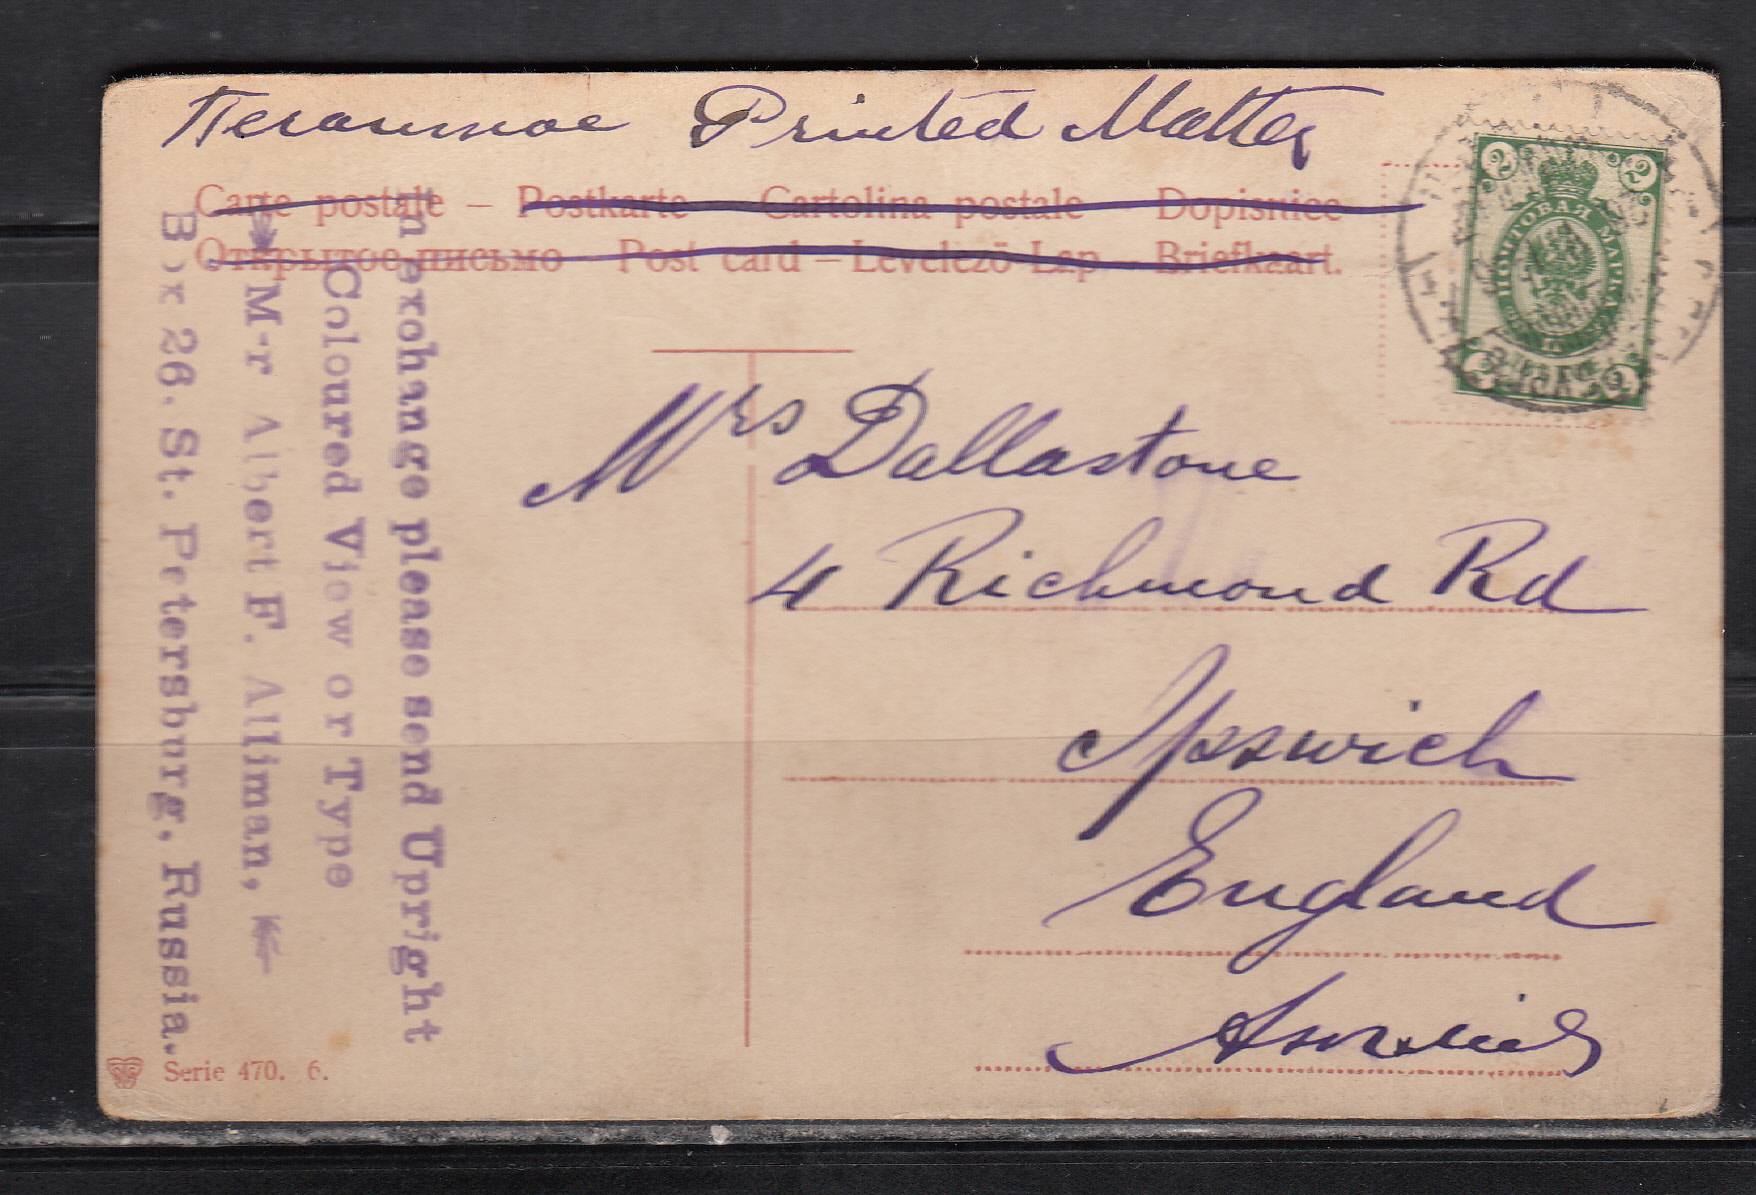 Печатное Printed Matter
Carte postale – Postkarte – Cartolina postale – Dopisnice
Открытое письмо – Post card – Levelező-Lap – Briefkaart.
2 2
ПОЧТОВАЯ МАРКА
2 2
Mrs Dallastone
4 Richmond Rd
Ipswich
England
Англія
In exchange please send Upright
Coloured View or Type
M-r Albert F. Alliman,
Box 26. St. Petersburg, Russia.
Serie 470. 6.